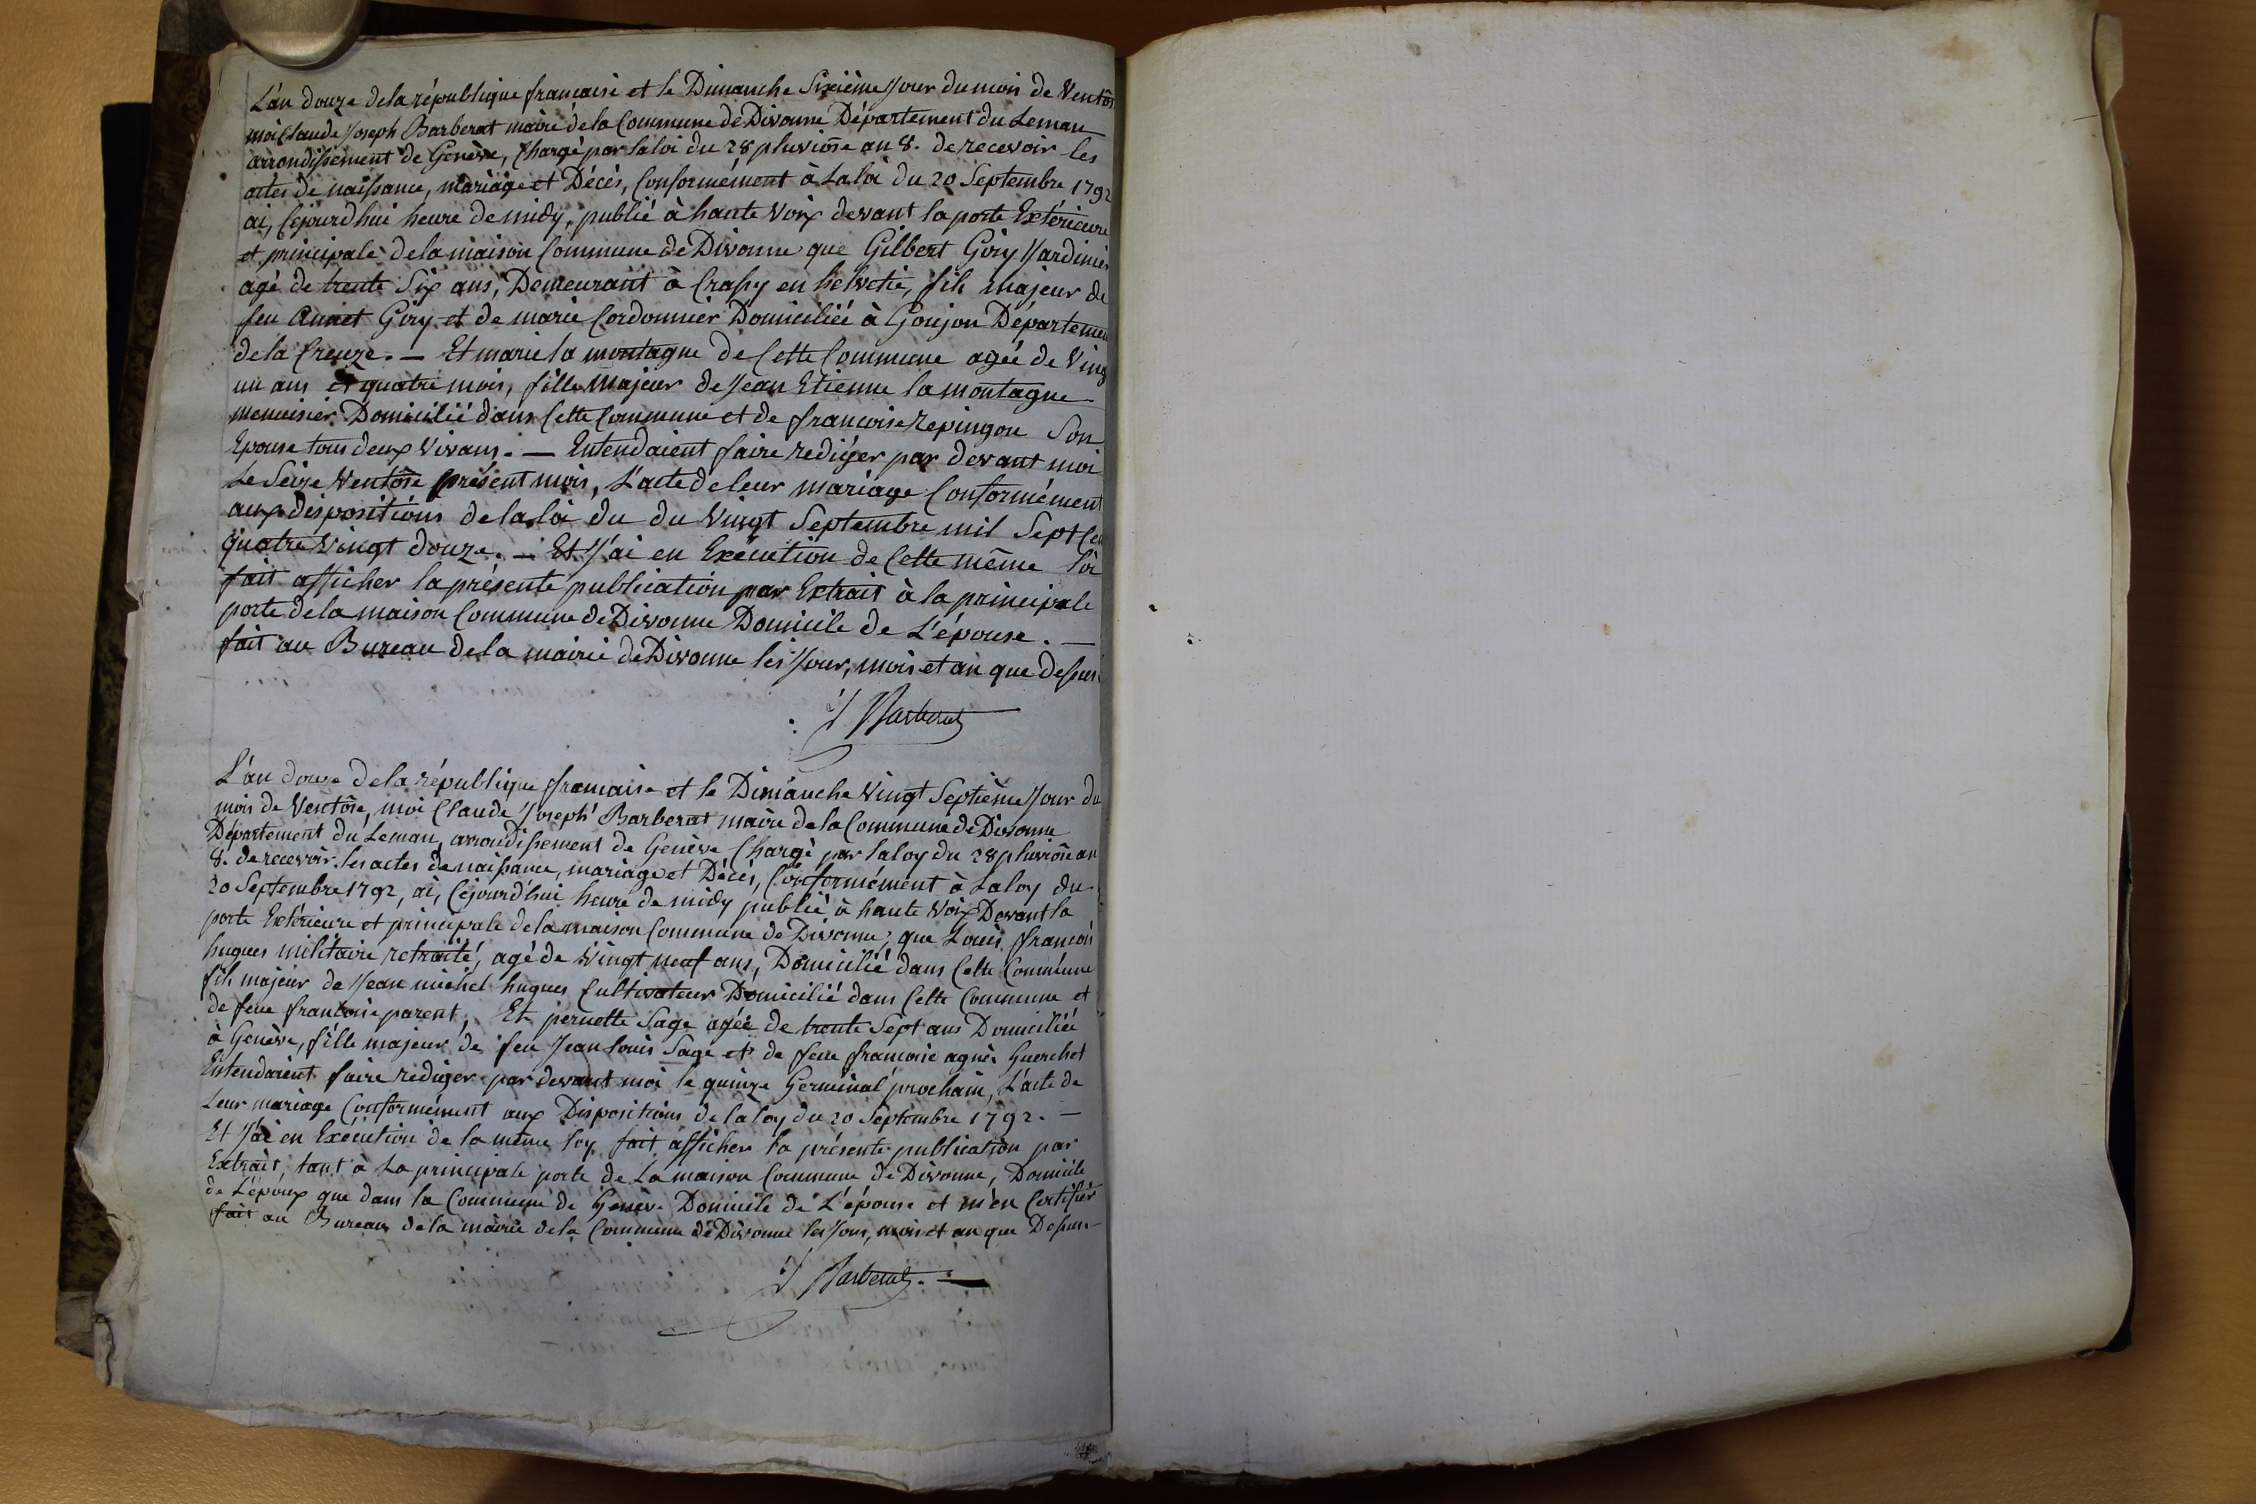 L'an douze de la république francaise et le Dimanche Sixième Jour du mois de Ventôs
moi Claude Joseph Barberat maire de la Commune de Divonne Département du Leman
arrondissement de Genève, Chargé par la loi du 28 pluviôse an 8. de recevoir les
actes de naissance, mariage et Décès, Conformément à La loi du 20 Septembre 1792
ai, Cejourd'hui heure de midy, publié à haute Voix devant la porte Extérieure
et principale de la maison Commune de Divonne que Gilbert Giry Jardinier
agé de trente Six ans, Demeurant à Crassy en helvetie, fils majeur de
feu Annet Giry et de marie Cordonnier Domiciliée à Goujon Départemen
de la Creuze. — Et marie la montagne de Cette Commune agée de Ving
un ans et quatre mois, fille Majeur de Jean Etienne la montagne
menuisier Domicilié dans Cette Commune et de francoise Repingon Son
Epouse tous deux Vivans. — Entendaient faire rediger par devant moi
Le Seize Ventôse présent mois, L'acte de leur mariage Conformément
aux dispositions de la loi du du Vingt Septembre mil Sept Ce
quatre Vingt douze. — Et J'ai en Exécution de Cette même loi
fait afficher la présente publication par Extrait à la principale
porte de la maison Commune de Divonne Domicile de L'épouse. —
fait au Bureau de la mairie de Divonne les Jour, mois et an que dessus
J Barberat
L'an douze de la république francaise et le Dimanche Vingt Septième Jour du
mois de Ventôse, moi Claude Joseph Barberat maire de la Commune de Divonne
Département du Leman, arrondissement de Genève Chargé par la loy du 28 pluviôse an
8. de recevoir les actes de naissance, mariage et Décès, Conformément à La loy du
20 Septembre 1792, ai, Cejourd'hui heure de midy publié à haute Voix Devant la
porte Extérieure et principale de la maison Commune de Divonne; que Louis francois
hugues militaire retraité, agé de Vingt neuf ans, Domicilié dans Cette Commune
fils majeur de Jean michel hugues Cultivateur Domicilié dans Cette Commune et
de feue francoise parent, Et pernette Sage agée de trente Sept ans Domiciliée
à Genève, fille majeur de feu Jean Louis Sage et de feue francoise agnès Guerchet
Entendaient faire rediger par devant moi le quinze Germinal prochain, L'acte de
Leur mariage Conformément aux Dispositions de la loy du 20 Septembre 1792. —
Et J'ai en Exécution de la même loy fait afficher la présente publication par
Extrait, tant à La principale porte de La maison Commune de Divonne, Domicile
de L'époux que dans la Commune de Genève Domicile de L'épouse et m'en Certifier
fait au Bureau de la mairie de la Commune de Divonne les Jour, mois et an que Dessus —
J Barberat. —